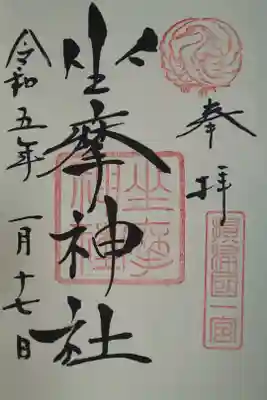 奉拝
攝津国一宮
坐摩神社
坐摩
神社
令和五年一月十七日